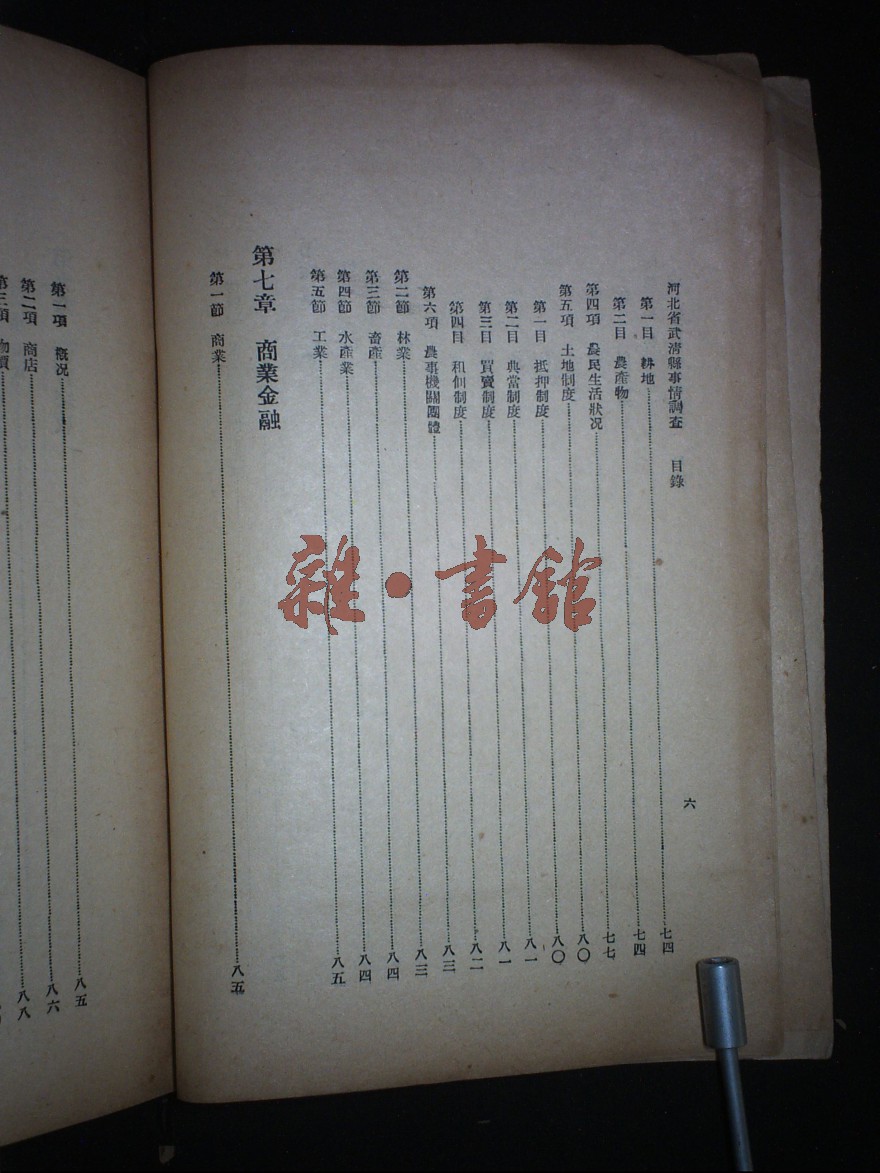 河北省武清縣事情調查 目錄 六
第一目 耕地 七四
第二目 農產物 七四
第四項 農民生活狀況 七七
第五項 土地制度 八〇
第一目 抵押制度 八〇
第二目 典當制度 八一
第三目 買賣制度 八一
第四目 租佃制度 八二
第六項 農事機關團體 八三
第二節 林業 八三
第三節 畜產 八四
第四節 水產業 八四
第五節 工業 八五
第七章 商業金融
第一節 商業 八五
第一項 概況 八五
第二項 商店 八六
第三項 物價 八八
雜·書館